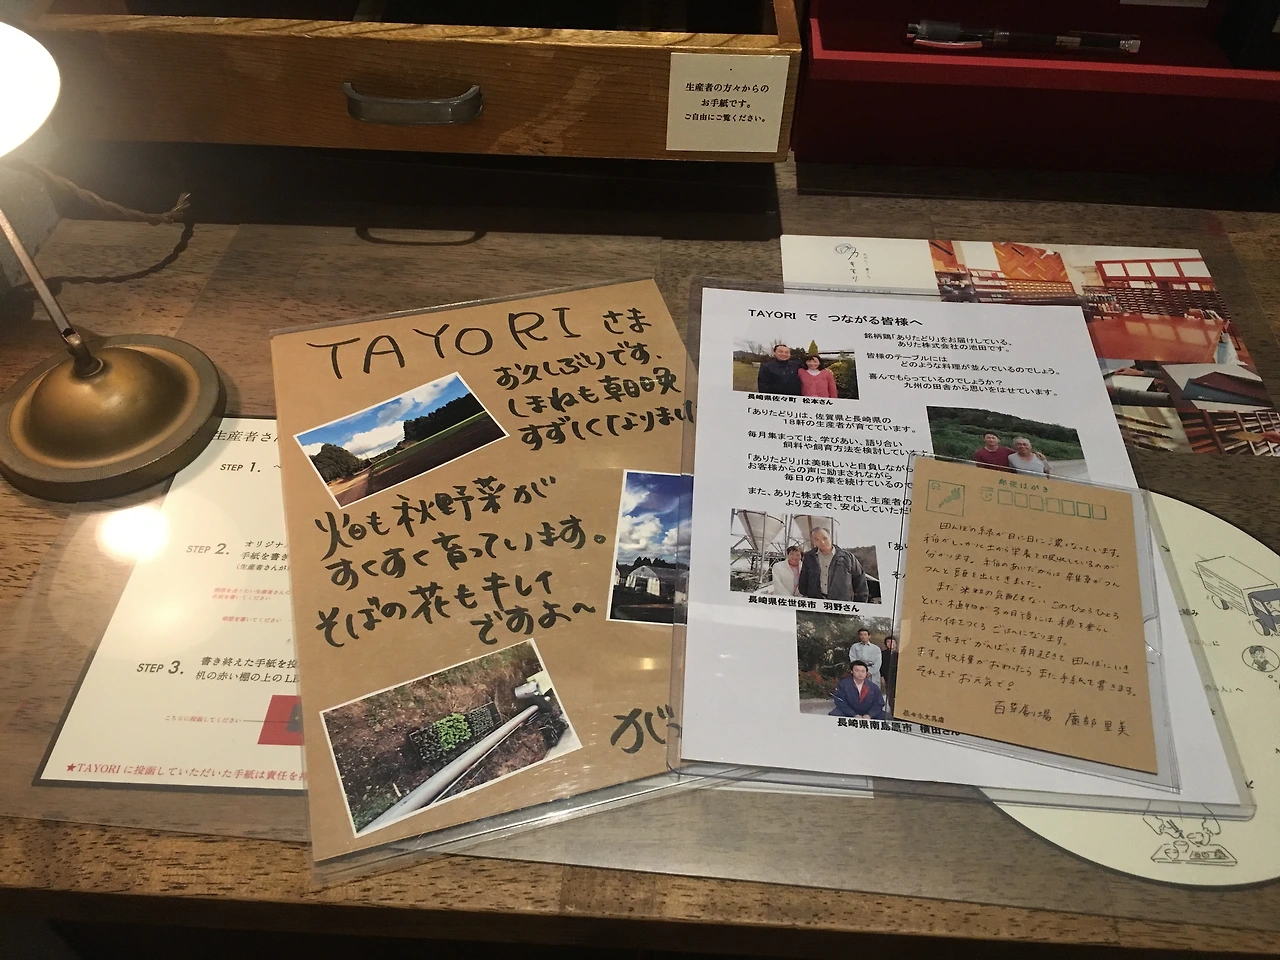 生産者の方々からの
お手紙です。
ご自由にご覧ください。
TAYORI さま
お久しぶりです、
しまねも朝晩
すずしくなりまし
畑も秋野菜が
すくすく育っています。
そばの花もキレイ
ですよ〜
がっ
TAYORI で つながる皆様へ
銘柄鶏「ありたどり」をお届けしている、
ありた株式会社の池田です。
皆様のテーブルには
どのような料理が並んでいるのでしょう。
喜んでもらっているのでしょうか?
九州の田舎から思いをはせています。
長崎県佐々町 松本さん
「ありたどり」は、佐賀県と長崎県の
18軒の生産者が育てています。
毎月集まっては、学びあい、語り合い
飼料や飼育方法を検討している
「ありたどり」は美味しいと自負しながら
お客様からの声に励まされながら
毎日の作業を続けているので
また、ありた株式会社では、生産者の
より安全で、安心していただい
長崎県佐世保市 羽野さん
長崎県南島原市 横田さん
郵便はがき
田んぼの緑が日に日に濃くなっています。
稲がしっかり土から栄養を吸収しているのが
分かります。
つんと顔を出してきました。
まだ米粒の気配もない、このひょろひょろ
とした植物が3ヶ月後には穂を垂らし
私の体をつくるごはんになります。
それまでがんばって朝起きて田んぼにいき
ます。収穫がおわったらまた手紙を書きます。
それまでお元気で!
百草劇場 廣部里美
生産者さん
STEP 1.
STEP 2.
オリジナ
手紙を書き
(生産者さんが
STEP 3.
書き終えた手紙を投
机の赤い棚の上の
こちらに投函してください
★TAYORI に投函していただいた手紙は責任を持